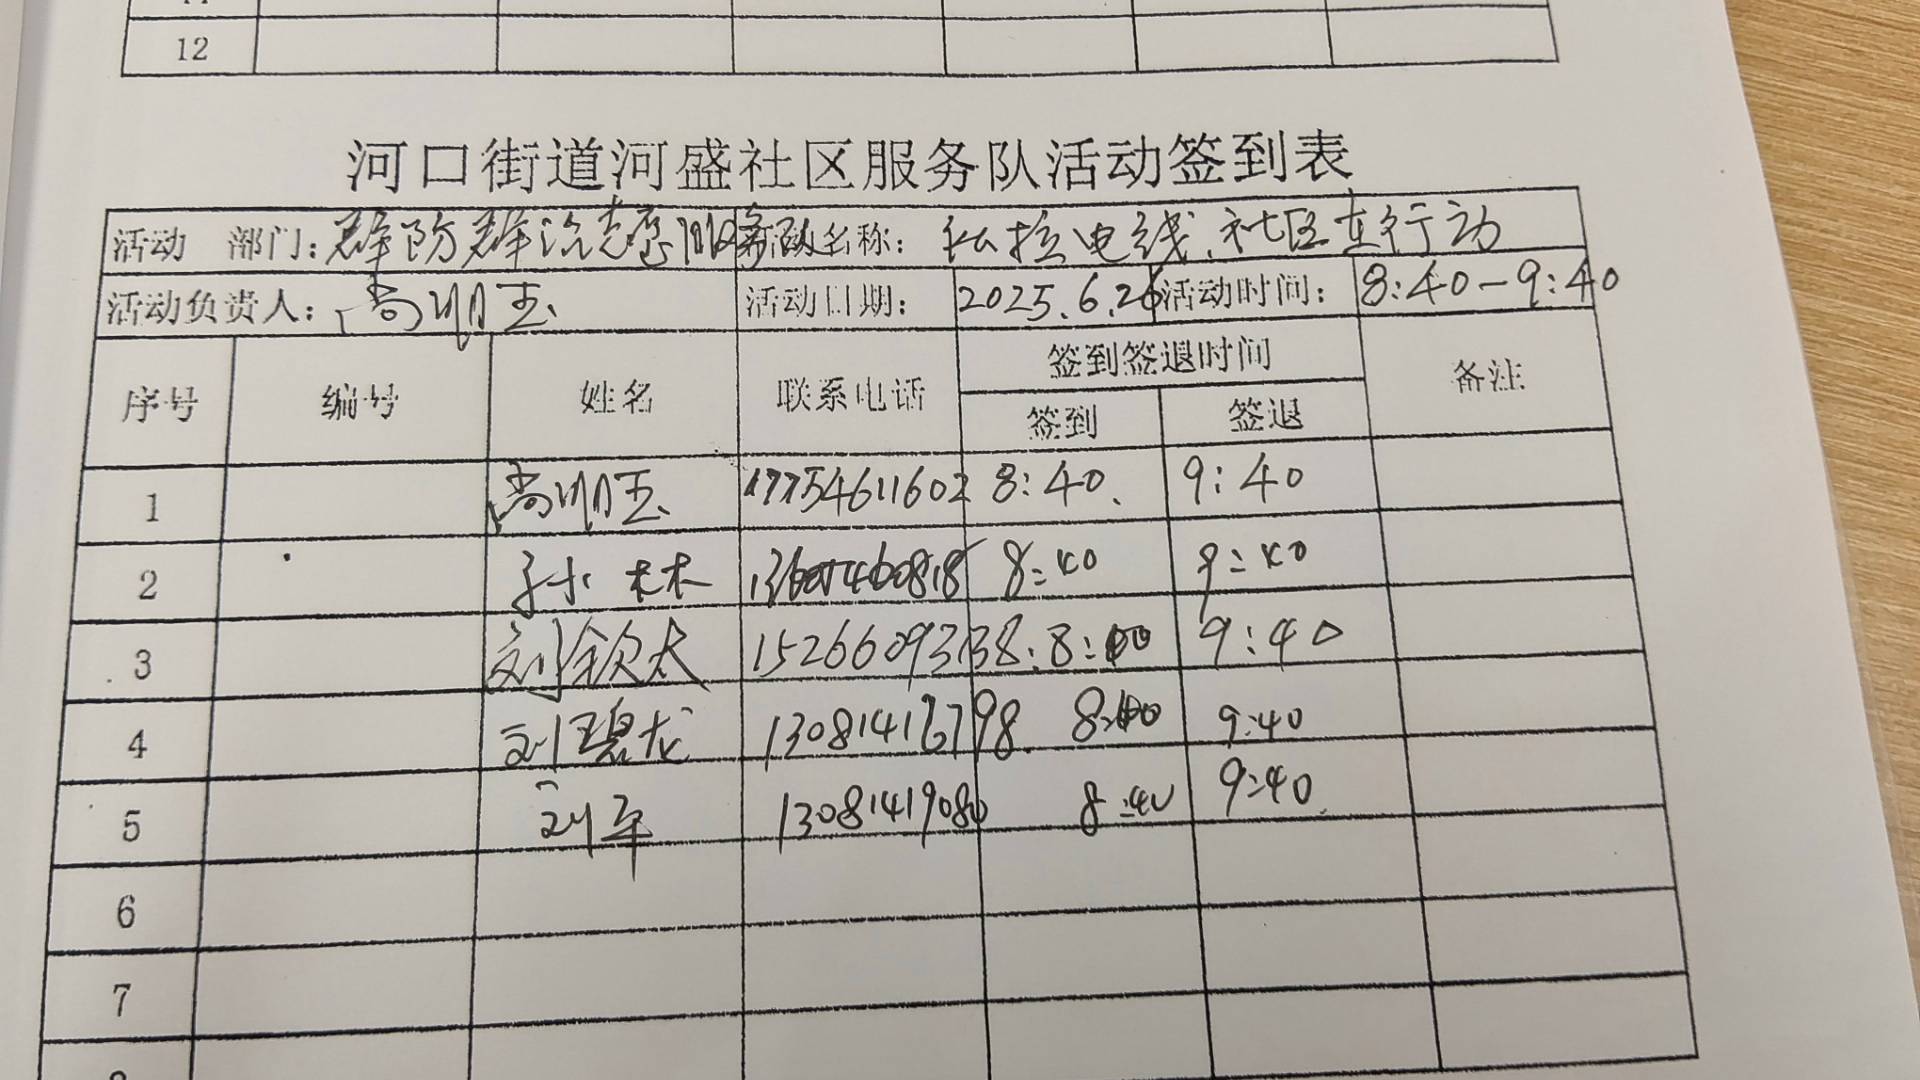 12
河口街道河盛社区服务队活动签到表
活动 部门：群防群治志愿服务队 活动名称：私拉电线,社区在行动
活动负责人：尚洲玉 活动日期：2025.6.26 活动时间：8:40-9:40
序号 编号 姓名 联系电话 签到签退时间 备注
签到 签退
1 尚洲玉 17754611602 8:40. 9:40
2 孙木林 8:40 9:40
3 刘钦太 15266093138 9:40
4 刘碧龙 9:40
5 刘军 13081419080 8:40 9:40
6
7